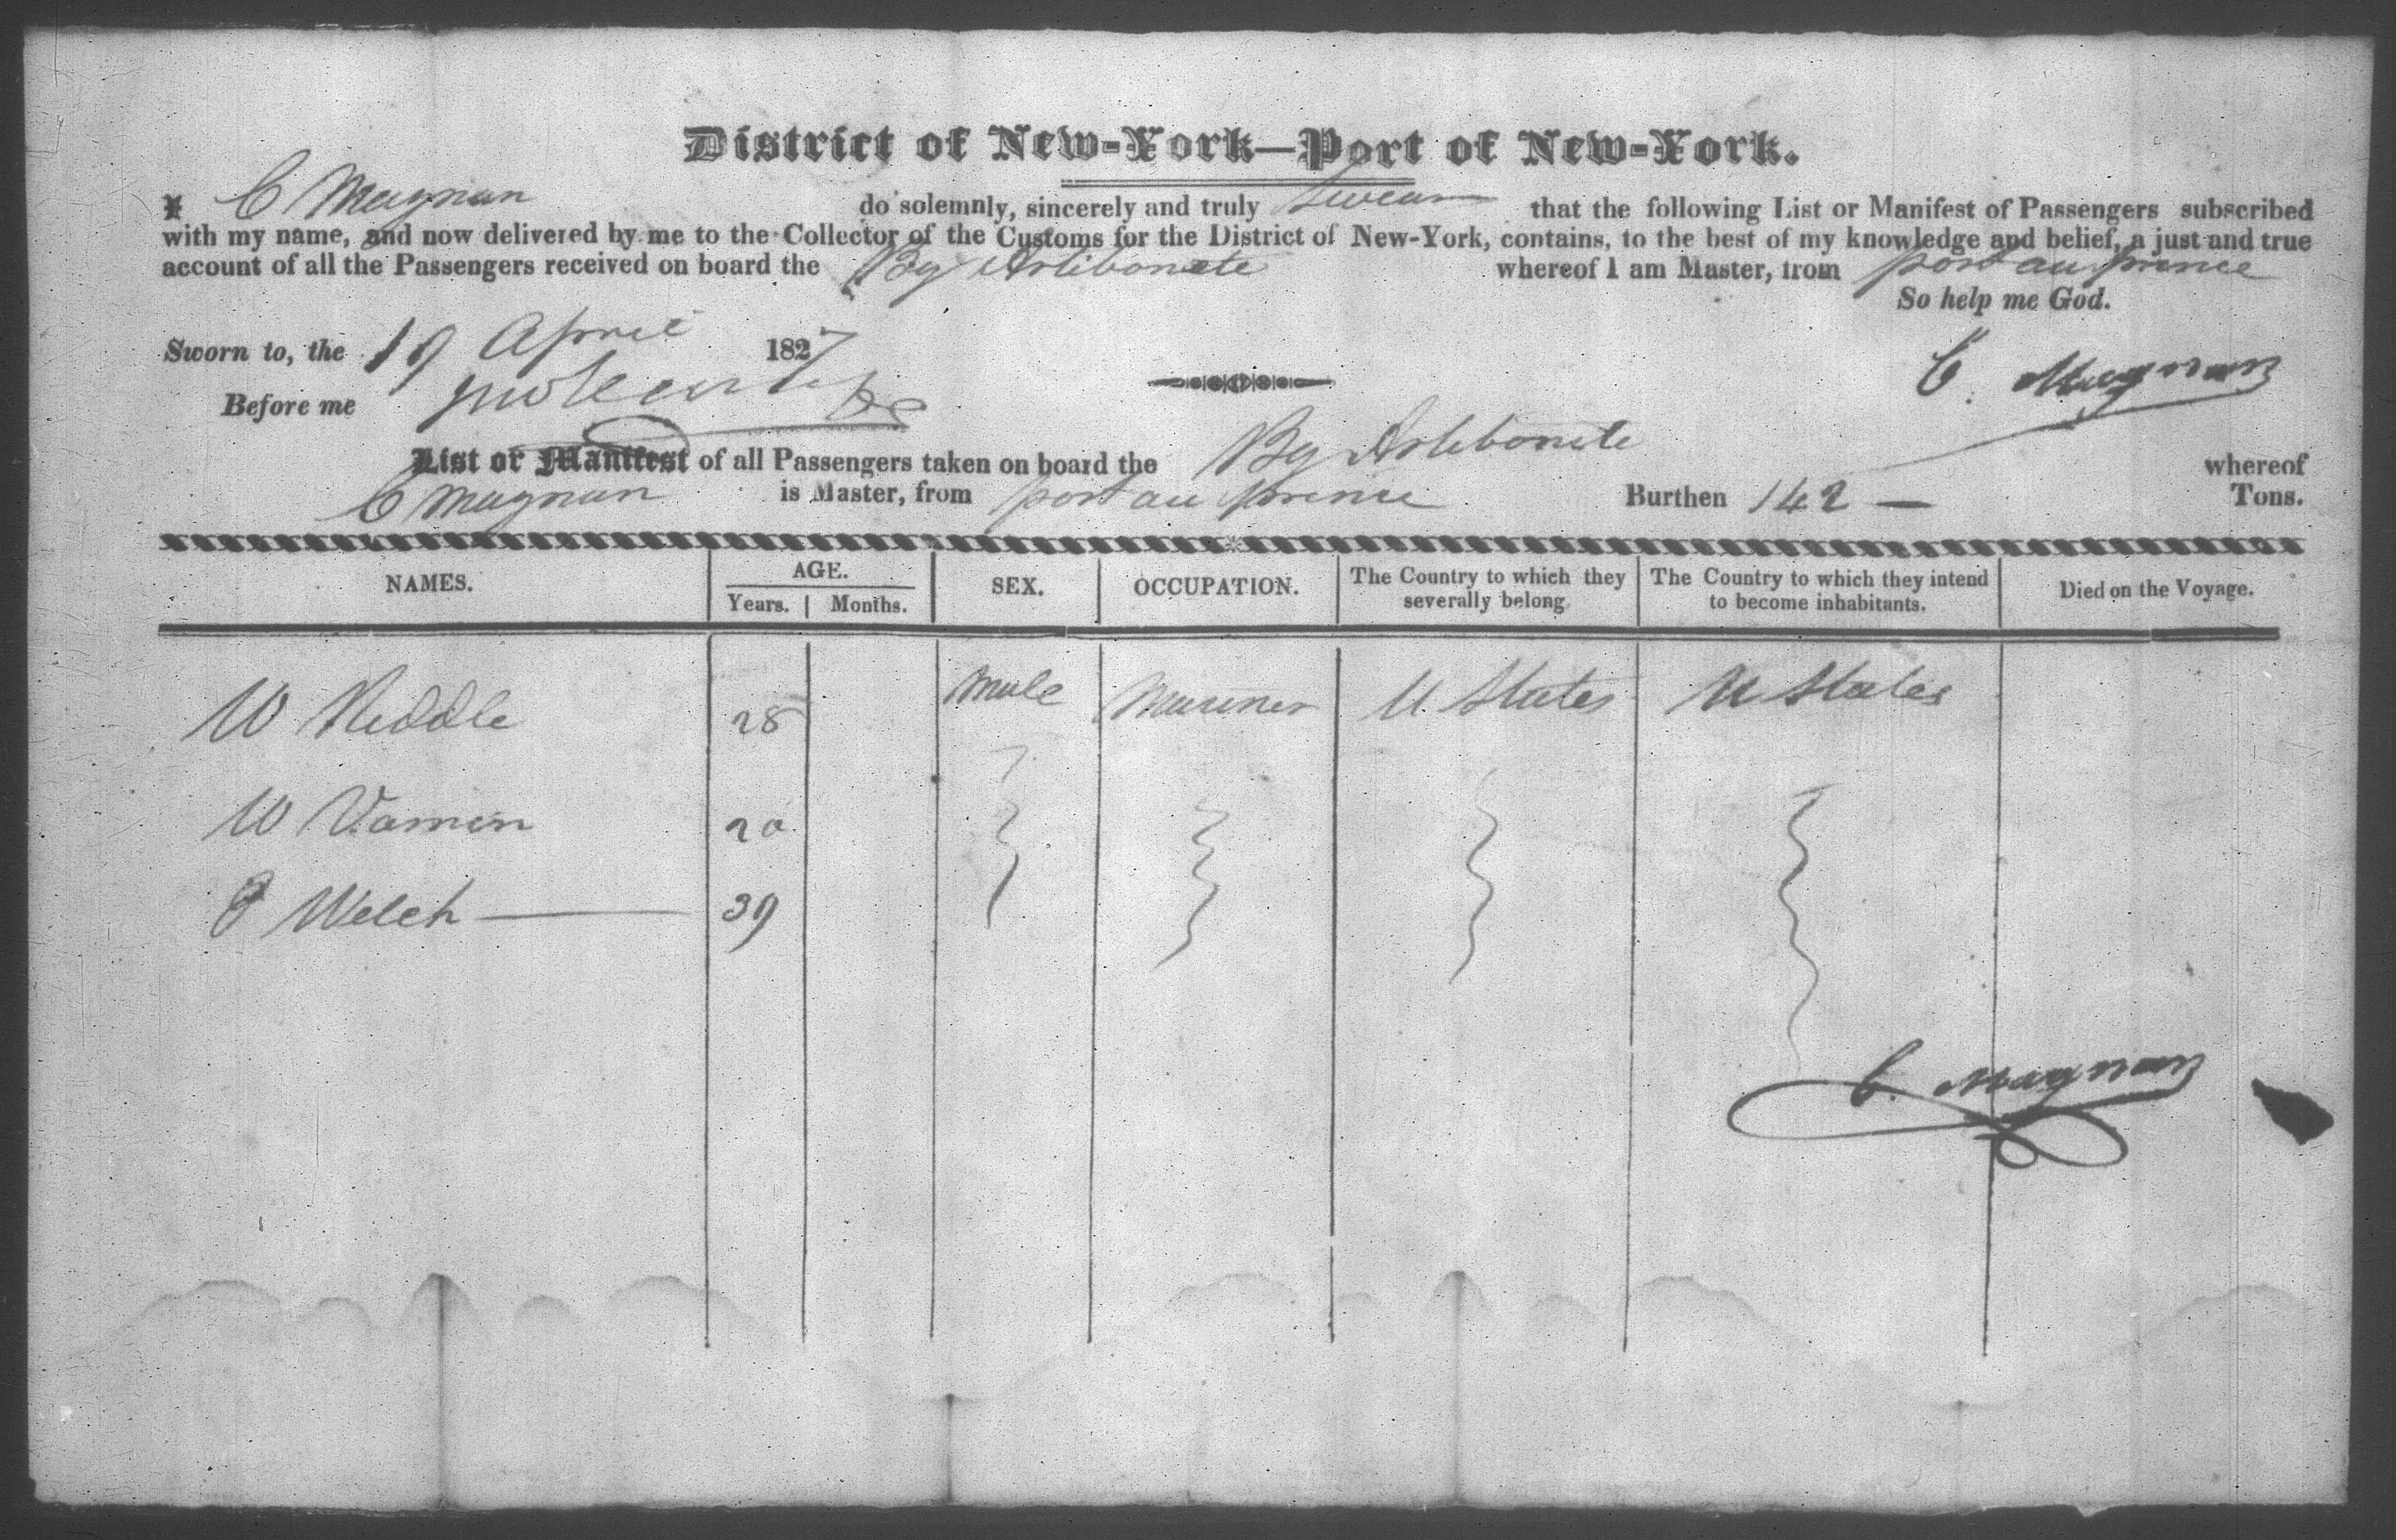 District of New-York—Port of New-York.
I C Magnan do solemnly, sincerely and truly swear that the following List or Manifest of Passengers subscribed
with my name, and now delivered by me to the Collector of the Customs for the District of New-York, contains, to the best of my knowledge and belief, a just and true
account of all the Passengers received on board the Bg Artibonite whereof I am Master, from port au prince
So help me God.
Sworn to, the 19 April 1827
C. Magnan
Before me
List or Manifest of all Passengers taken on board the Bg Artibonite whereof
C Magnan is Master, from port au prince Burthen 142 — Tons.
NAMES. AGE. SEX. OCCUPATION. The Country to which they severally belong. The Country to which they intend to become inhabitants. Died on the Voyage.
Years. Months.
W Neddle 28 Male Mariner U. States U States
W 20
Welch — 39
C. Magnan